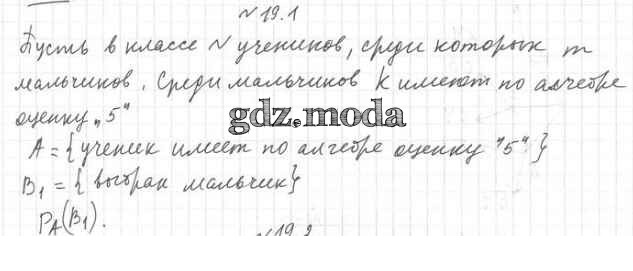 № 19.1
Пусть в классе N учеников, среди которых m
мальчиков. Среди мальчиков k имеют по алгебре
оценку „5"
gdz.moda
A = { ученик имеет по алгебре оценку "5". }
B₁ = { выбран мальчик}
P_A(B₁).
№ 19.2